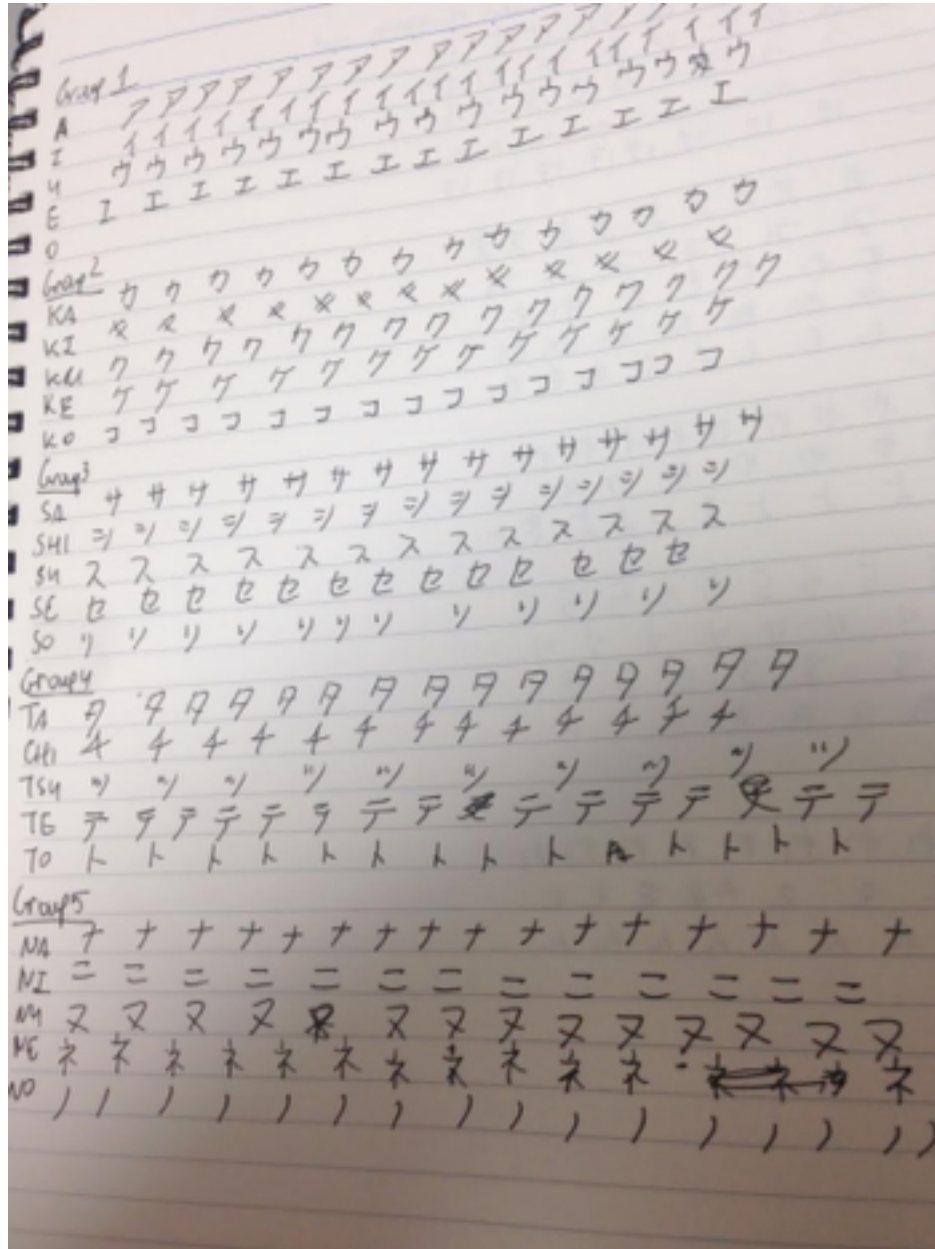 Group 1
A ア ア ア ア ア ア ア ア ア ア ア ア ア ア ア
I イ イ イ イ イ イ イ イ イ イ イ イ イ イ イ イ イ イ
U ウ ウ ウ ウ ウ ウ ウ ウ ウ ウ ウ ウ ウ ウ ウ
E エ エ エ エ エ エ エ エ エ エ エ エ エ エ
O
Group 2
KA カ カ カ カ カ カ カ カ カ カ カ カ カ カ
KI キ キ キ キ キ キ キ キ キ キ キ キ
KU ク ク ク ク ク ク ク ク ク ク ク ク ク ク ク
KE ケ ケ ケ ケ ケ ケ ケ ケ ケ ケ ケ ケ ケ
KO コ コ コ コ コ コ コ コ コ コ コ コ コ コ
Group 3
SA サ サ サ サ サ サ サ サ サ サ サ サ サ サ
SHI シ シ シ シ シ シ シ シ シ シ シ シ シ シ
SU ス ス ス ス ス ス ス ス ス ス ス ス
SE セ セ セ セ セ セ セ セ セ セ セ セ セ
SO ソ ソ ソ ソ ソ ソ ソ ソ ソ ソ ソ ソ
Group 4
TA タ タ タ タ タ タ タ タ タ タ タ タ タ タ タ
CHI チ チ チ チ チ チ チ チ チ チ チ チ チ
TSU ツ ツ ツ ツ ツ ツ ツ ツ ツ ツ
TE テ テ テ テ テ テ テ テ テ テ テ テ テ テ
TO ト ト ト ト ト ト ト ト ト ト ト ト ト
Group 5
NA ナ ナ ナ ナ ナ ナ ナ ナ ナ ナ ナ ナ ナ ナ ナ ナ
NI ニ ニ ニ ニ ニ ニ ニ ニ ニ ニ ニ ニ ニ
NU ヌ ヌ ヌ ヌ ヌ ヌ ヌ ヌ ヌ ヌ ヌ ヌ ヌ
NE ネ ネ ネ ネ ネ ネ ネ ネ ネ ネ ネ ネ
NO ノ ノ ノ ノ ノ ノ ノ ノ ノ ノ ノ ノ ノ ノ ノ ノ